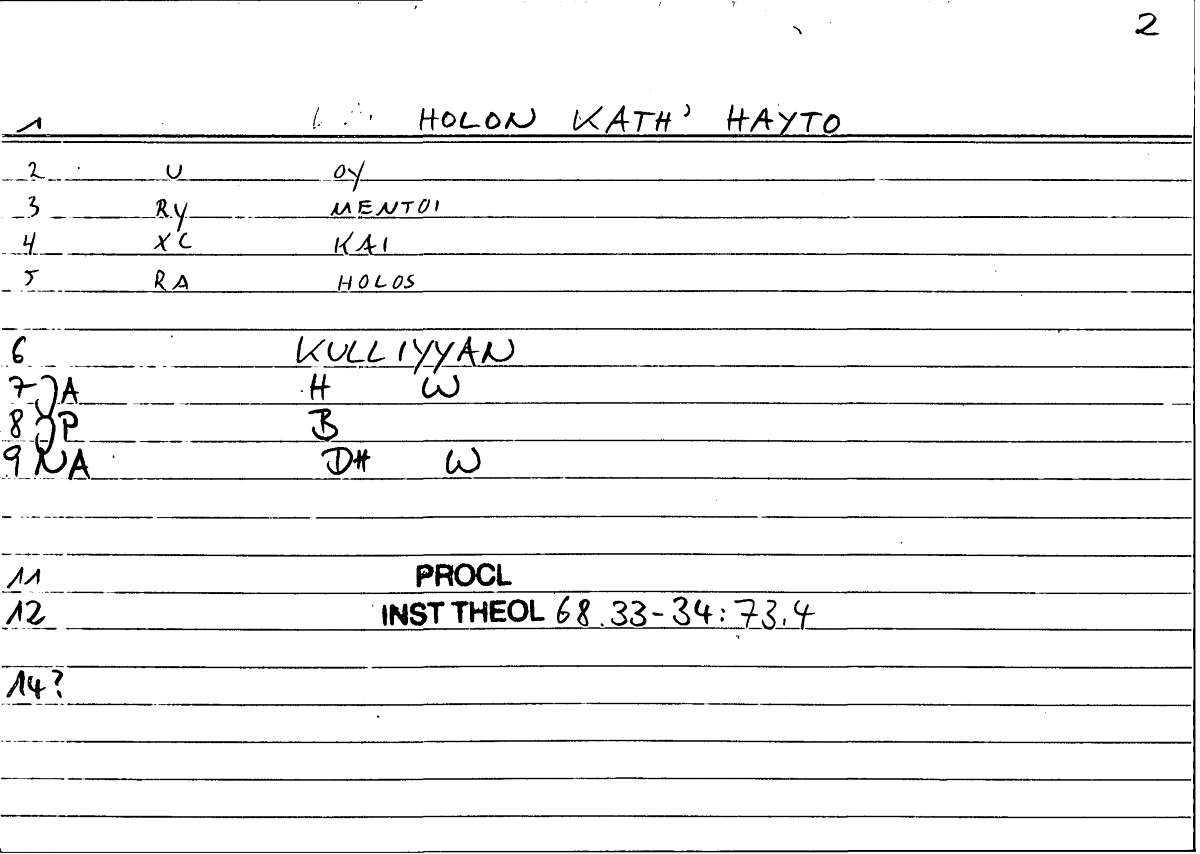 2
1 HOLON KATH' HAYTO
2 U OY
3 RY MENTOI
4 XC KAI
5 RA HOLOS
6 KULLIYYAN
7 A H W
8 P B
9 NA DH W
11 PROCL
12 INST THEOL 68.33-34:73.4
14?